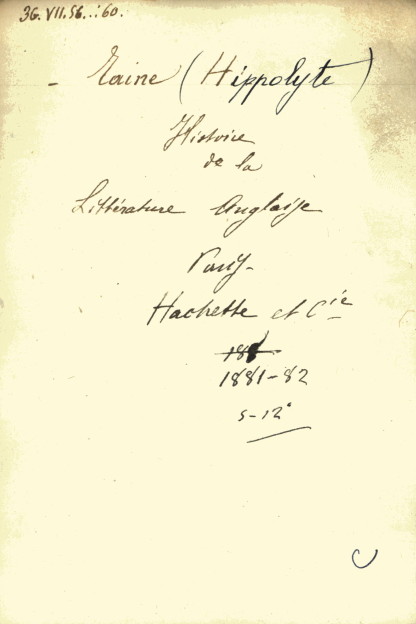 36. VII. 56...60.
- Taine (Hippolyte)
Histoire
de la
Littérature Anglaise
Paris.
Hachette et Cie
188
1881-82
5-12°